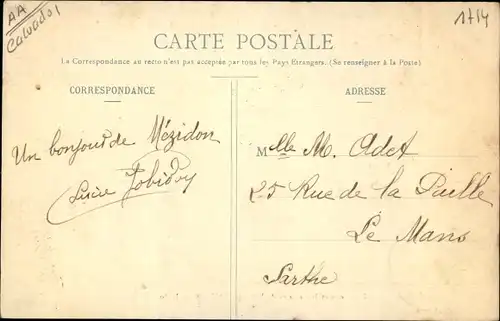 AA
Calvados
1714
CARTE POSTALE
La Correspondance au recto n'est pas acceptée par tous les Pays Etrangers. (Se renseigner à la Poste)
CORRESPONDANCE
Un bonjour de Mézidon
Lucie
ADRESSE
Mlle M. Adet
25 Rue de la Paille
Le Mans
Sarthe